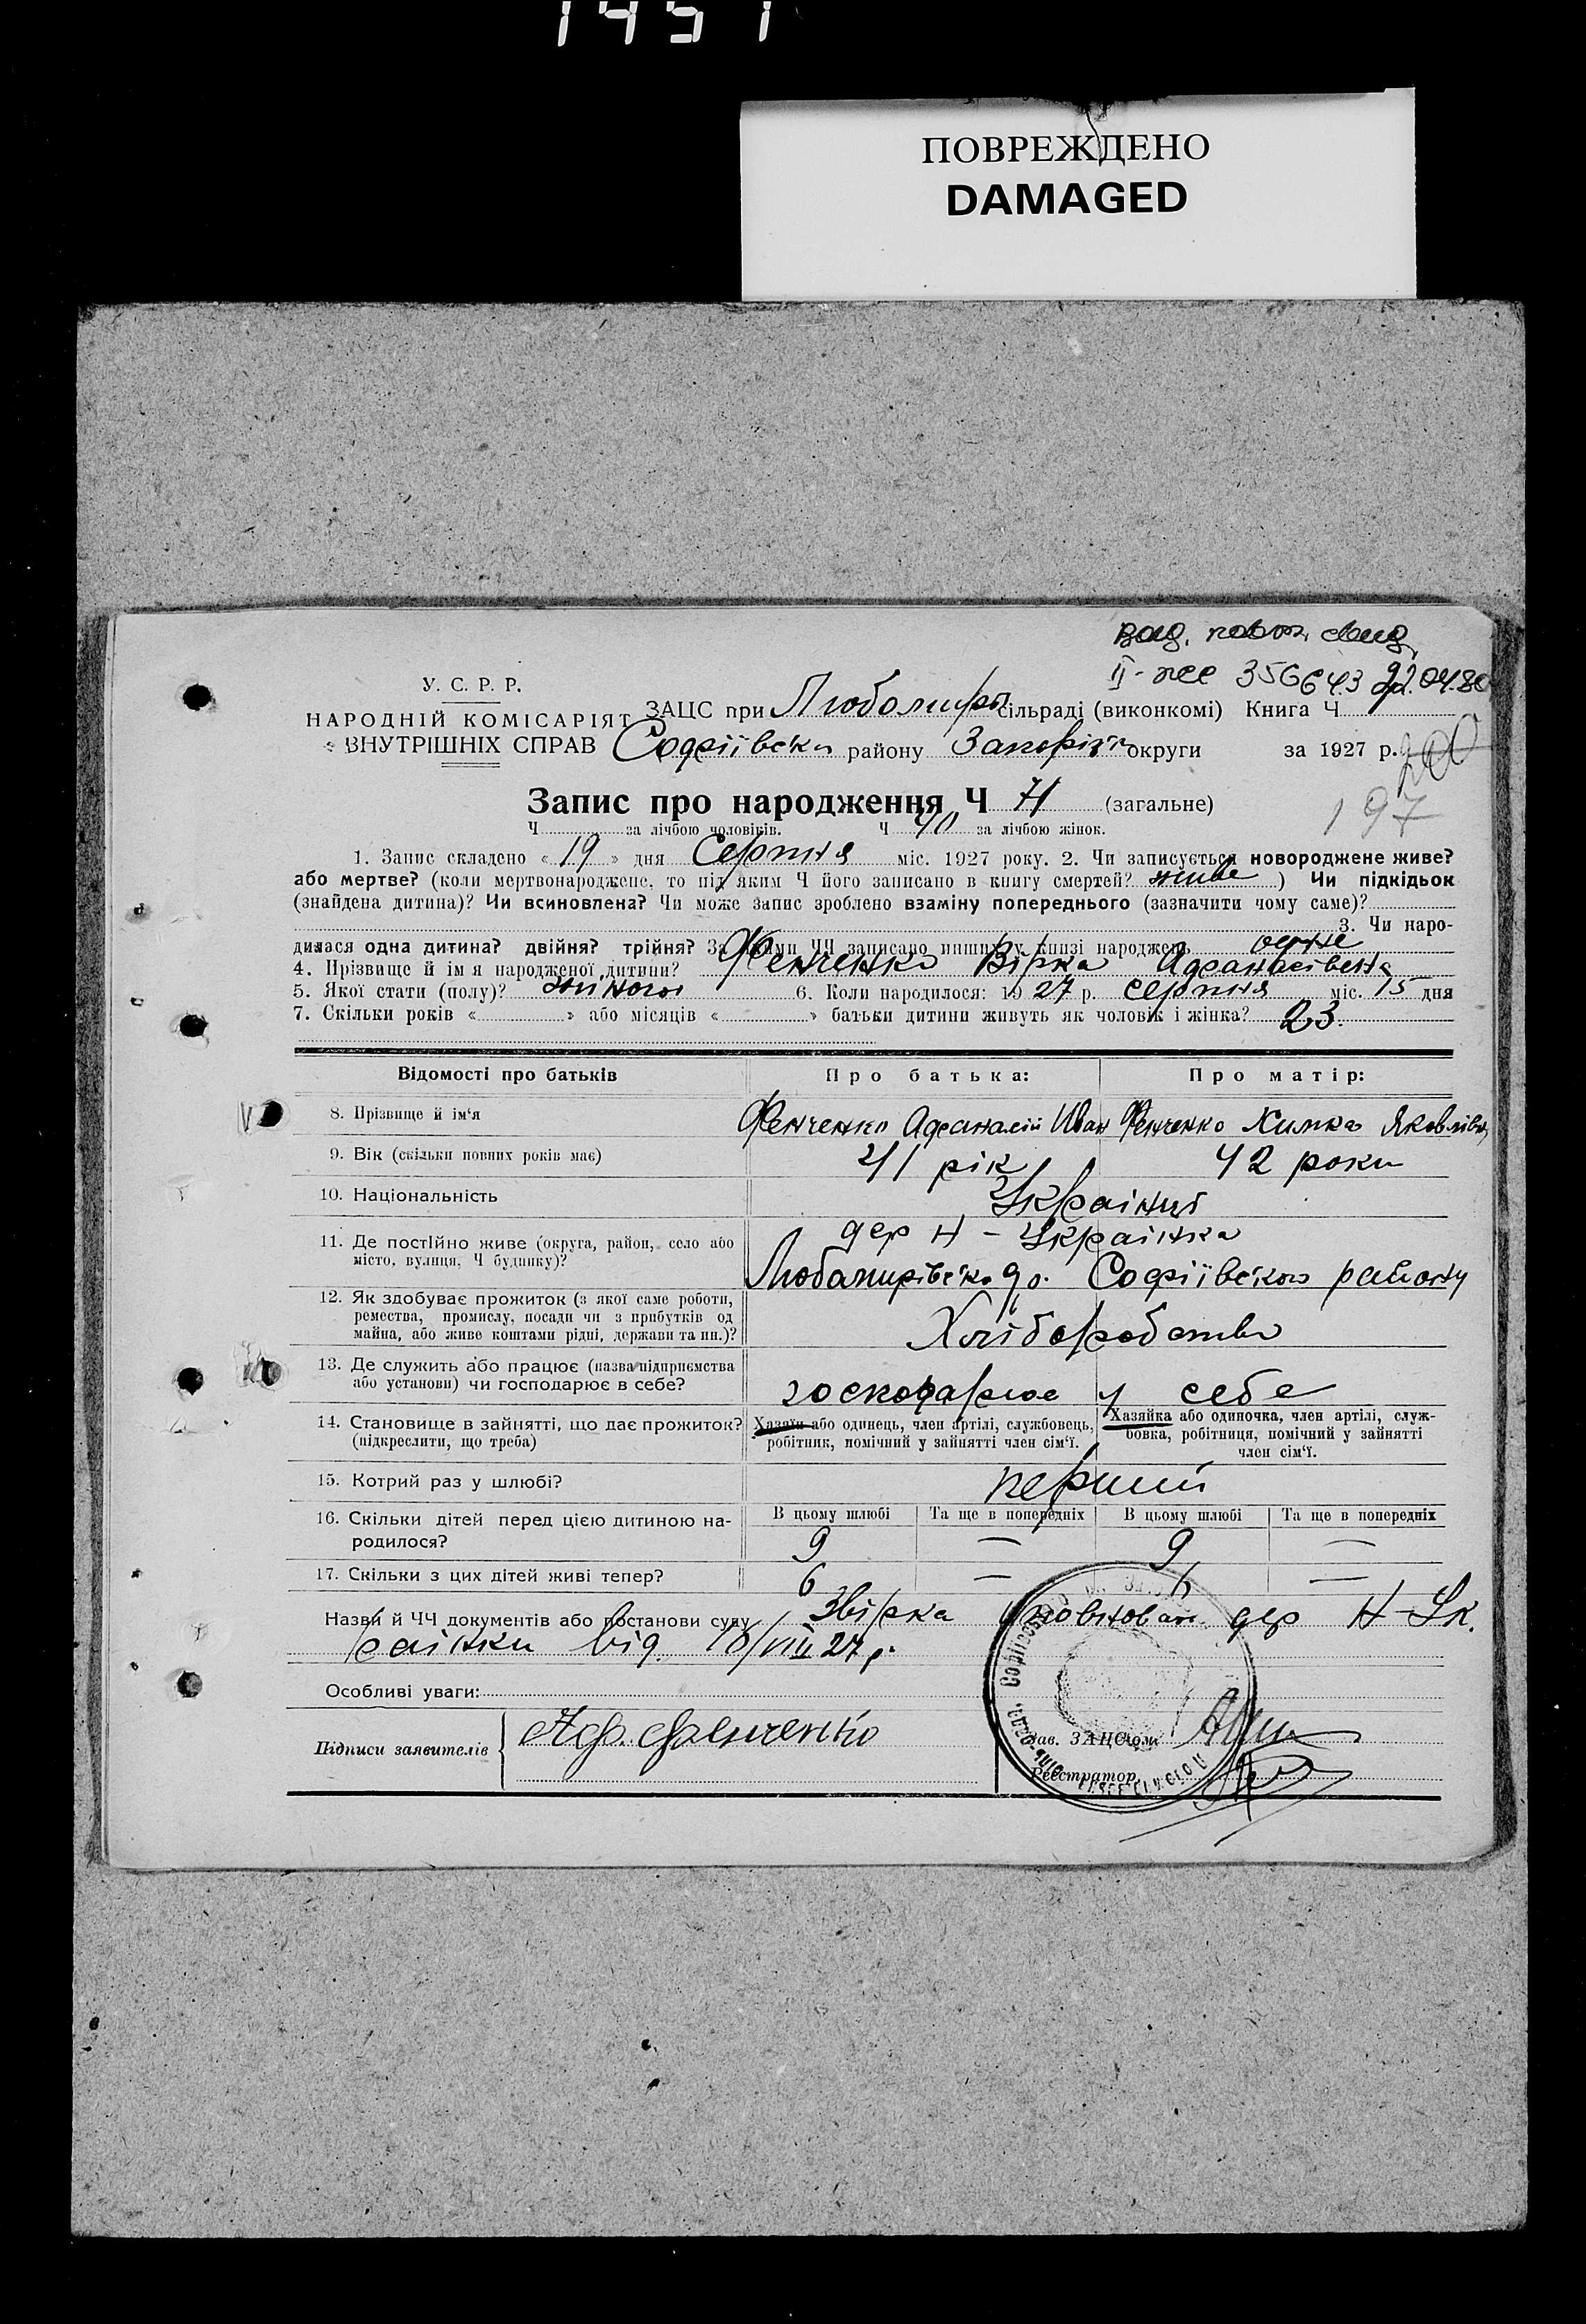 1451
ПОВРЕЖДЕНО
DAMAGED
II-нее 356643 22.04.80
У. С. Р. Р.
НАРОДНІЙ КОМІСАРІЯТ
ВНУТРІШНІХ СПРАВ
ЗАЦС при Любомирів сільраді (виконкомі) Книга Ч
Софіївськ району Запоріж округи за 1927 р. 200
197
Запис про народження Ч 71 (загальне)
Ч за лічбою чоловіків. Ч 40 за лічбою жінок.
1. Запис складено «19» дня Серпня міс. 1927 року. 2. Чи записується новороджене живе?
або мертве? (коли мертвонароджене, то під яким Ч його записано в книгу смертей? живе) Чи підкідьок
(знайдена дитина)? Чи всиновлена? Чи може запис зроблено взаміну попереднього (зазначити чому саме)?
3. Чи наро-
дилася одна дитина? двійня? трійня? За якими ЧЧ записано инших у книзі народжень одне
4. Прізвище й ім я народженої дитини? Фенченко Вірка Афанасівена
5. Якої стати (полу)? жіночої 6. Коли народилося: 1927 р. серпня міс. 15 дня
7. Скільки років « » або місяців « » батьки дитини живуть як чоловік і жінка? 23.
Відомості про батьків Про батька: Про матір:
8. Прізвище й ім‘я Фенченко Афанасій Иван Фенченко Химка Яковлівна
9. Вік (скільки повних років має) 41 рік 42 роки
10. Національність Українці
11. Де постійно живе (округа, район, село або
місто, вулиця, Ч будинку)?
дер Н - Українка
Любомирівсько Софіївського району
12. Як здобуває прожиток (з якої саме роботи,
ремества, промислу, посади чи з прибутків од
майна, або живе коштами рідні, держави та ин.)?
Хліборобство
13. Де служить або працює (назва підприємства
або установи) чи господарює в себе?
господарює у себе
14. Становище в зайнятті, що дає прожиток?
(підкреслити, що треба)
Хазяїн або одинець, член артілі, службовець,
робітник, помічний у зайнятті член сім‘ї.
Хазяйка або одиночка, член артілі, служ-
бовка, робітниця, помічний у зайнятті
член сім‘ї.
15. Котрий раз у шлюбі? перший
16. Скільки дітей перед цією дитиною на-
родилося?
В цьому шлюбі Та ще в попередніх В цьому шлюбі Та ще в попередніх
9 — 9 —
17. Скільки з цих дітей живі тепер? 6 — 6 —
Назви й ЧЧ документів або постанови суду Звірка уповнован дер Н-Ук.
раїнки від 18/VIII 27 р.
Особливі уваги:
Підписи заявителів Аф. Фенченко
Зав. ЗАЦСом
Реєстратор